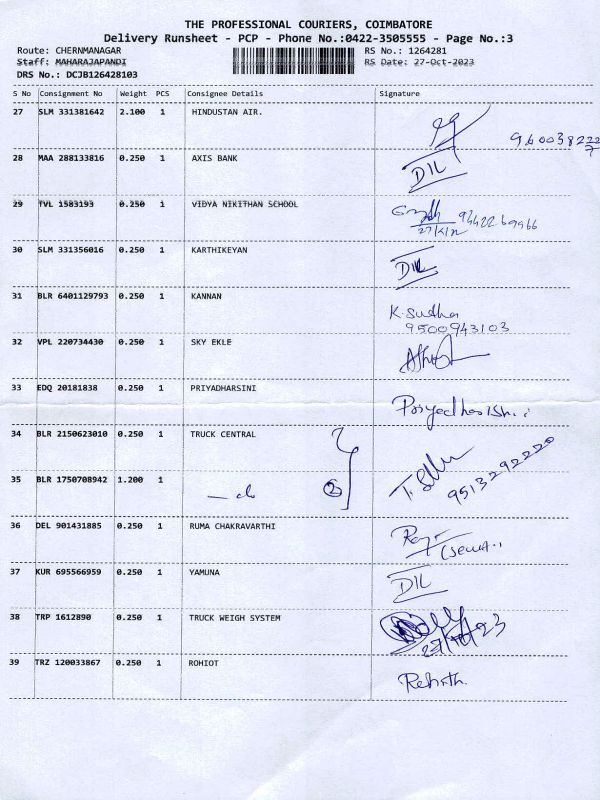 THE PROFESSIONAL COURIERS, COIMBATORE
Delivery Runsheet - PCP - Phone No.:0422-3505555 - Page No.:3
Route: CHERNMANAGAR RS No.: 1264281
Staff: MAHARAJAPANDI RS Date: 27-Oct-2023
DRS No.: DCJB126428103
S No Consignment No Weight PCS Consignee Details Signature
27 SLM 331381642 2.100 1 HINDUSTAN AIR.
28 MAA 288133816 0.250 1 AXIS BANK DIL
29 TVL 1583193 0.250 1 VIDYA NIKITHAN SCHOOL
30 SLM 331356016 0.250 1 KARTHIKEYAN DIL
31 BLR 6401129793 0.250 1 KANNAN K. Sudha
9500943103
32 VPL 220734430 0.250 1 SKY EKLE
33 EDQ 20181838 0.250 1 PRIYADHARSINI
34 BLR 2150623010 0.250 1 TRUCK CENTRAL
35 BLR 1750708942 1.200 1 — do 2 9513292220
36 DEL 901431885 0.250 1 RUMA CHAKRAVARTHI
37 KUR 695566959 0.250 1 YAMUNA DIL
38 TRP 1612890 0.250 1 TRUCK WEIGH SYSTEM
39 TRZ 120033867 0.250 1 ROHIOT